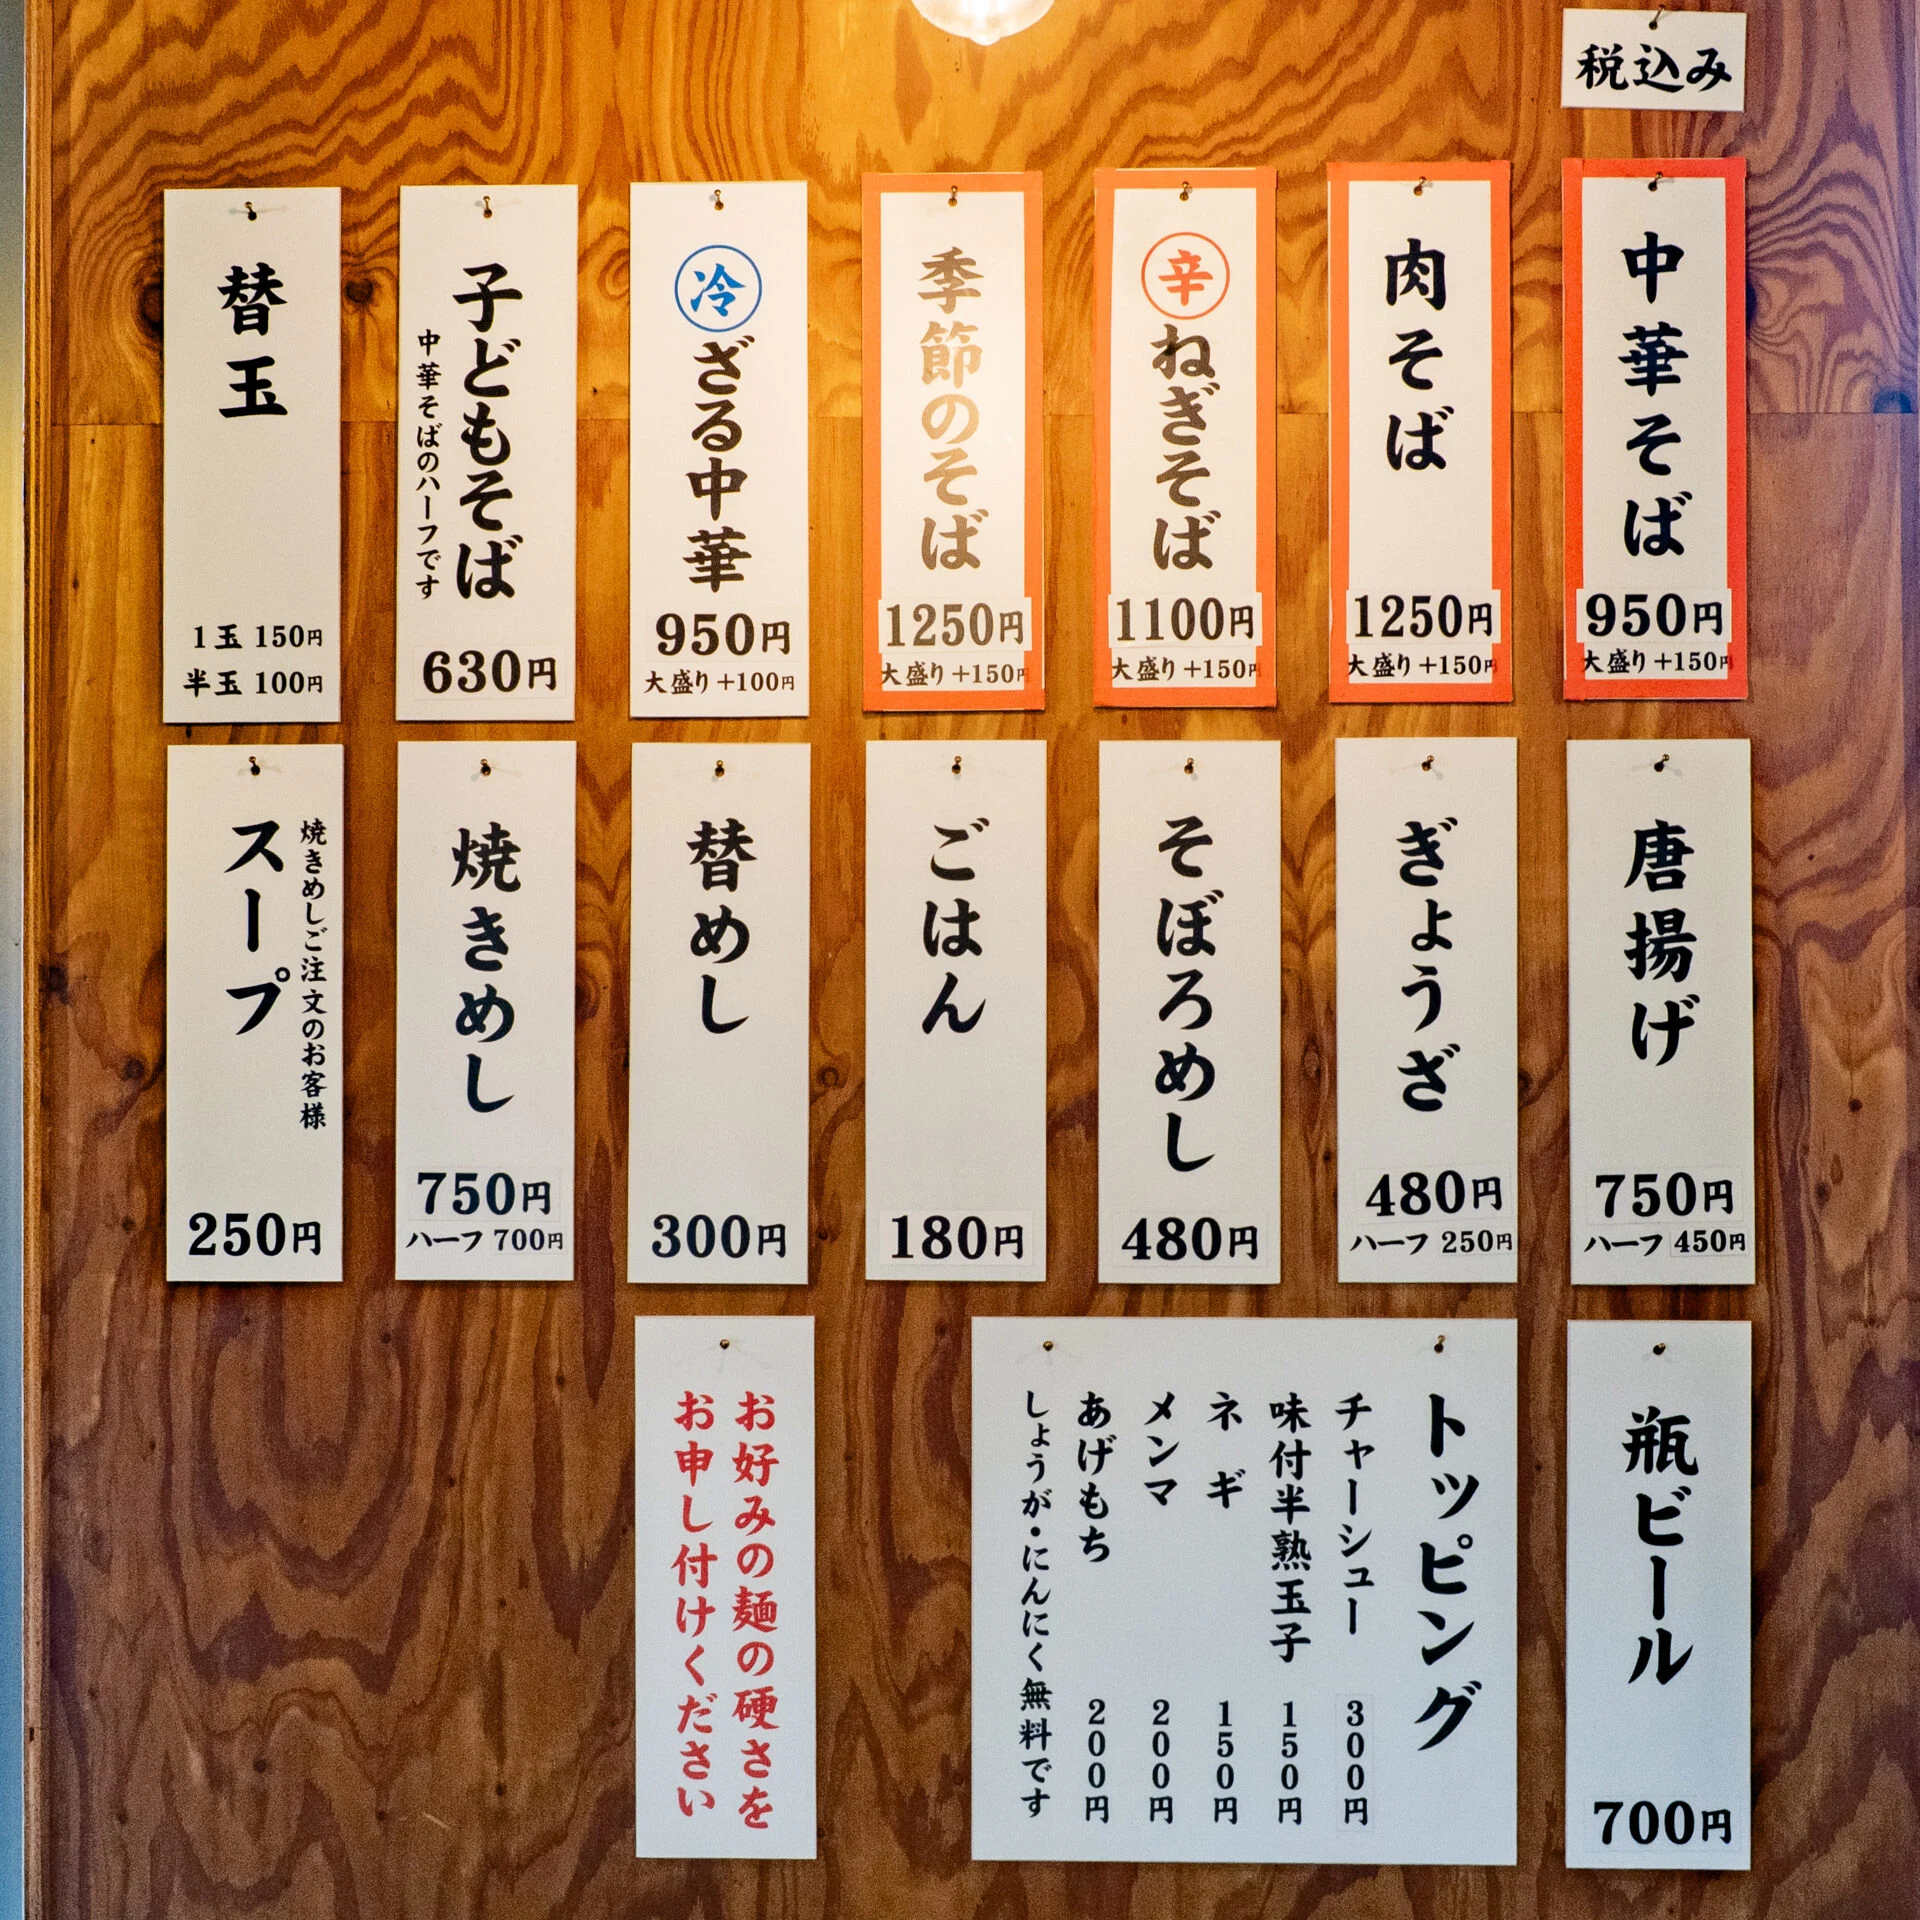 税込み
中華そば
950円
大盛り+150円
肉そば
1250円
大盛り+150円
辛
ねぎそば
1100円
大盛り+150円
季節のそば
1250円
大盛り+150円
冷
ざる中華
950円
大盛り+100円
子どもそば
中華そばのハーフです
630円
替玉
1玉 150円
半玉 100円
唐揚げ
750円
ハーフ 450円
ぎょうざ
480円
ハーフ 250円
そぼろめし
480円
ごはん
180円
替めし
300円
焼きめし
750円
ハーフ 700円
焼きめしご注文のお客様
スープ
250円
瓶ビール
700円
トッピング
チャーシュー 300円
味付半熟玉子 150円
ネギ 150円
メンマ 200円
あげもち 200円
しょうが・にんにく無料です
お好みの麺の硬さを
お申し付けください